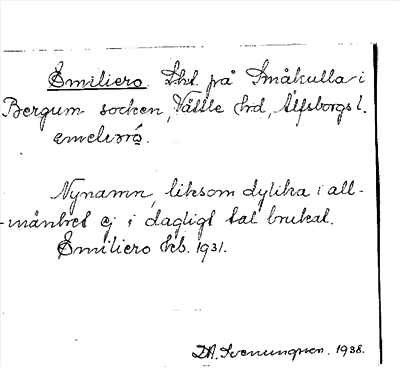 Emiliero. Lht. på Småkulla i
Bergum socken, Vättle hd, Älfsborgs l.
emelıırό.
Nynamn, liksom dylika i all-
mänhet ej i dagligt tal brukat.
Emiliero kb. 1931.
D.A. Svenungsson. 1938.